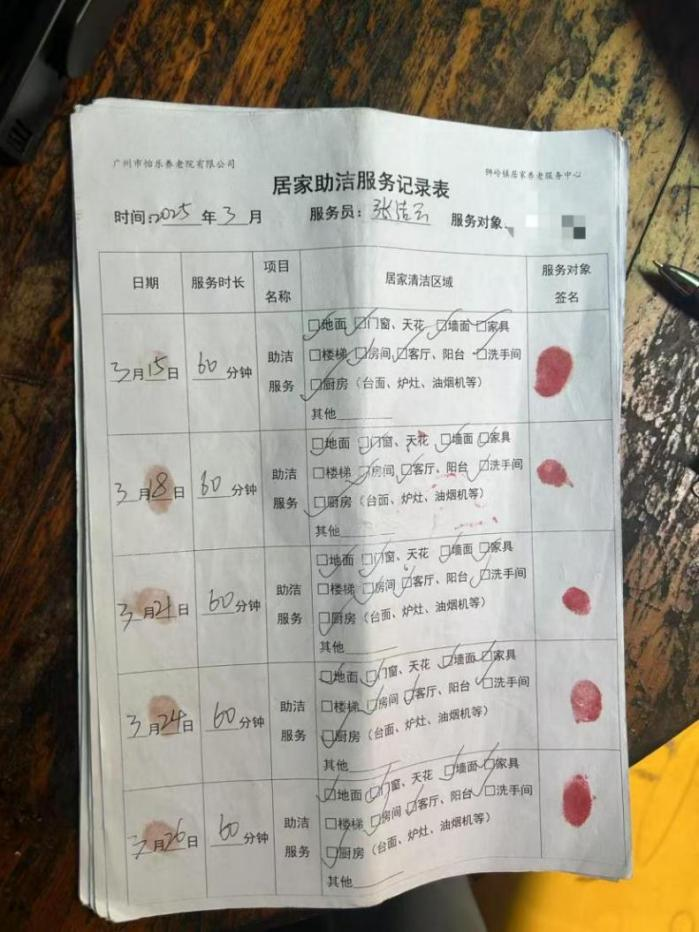 广州市怡乐养老院有限公司
狮岭镇居家养老服务中心
居家助洁服务记录表
时间:2025年3月 服务员:张洁云 服务对象
日期 服务时长 项目名称 居家清洁区域 服务对象签名
3月15日 60分钟 助洁服务
☑地面 ☑门窗、天花 ☑墙面 ☑家具
□楼梯 ☑房间 ☑客厅、阳台 ☑洗手间
☑厨房(台面、炉灶、油烟机等)
其他
3月18日 60分钟 助洁服务
☑地面 ☑门窗、天花 ☑墙面 ☑家具
□楼梯 ☑房间 ☑客厅、阳台 ☑洗手间
☑厨房(台面、炉灶、油烟机等)
其他
3月21日 60分钟 助洁服务
☑地面 ☑门窗、天花 ☑墙面 ☑家具
□楼梯 ☑房间 ☑客厅、阳台 ☑洗手间
☑厨房(台面、炉灶、油烟机等)
其他
3月24日 60分钟 助洁服务
☑地面 ☑门窗、天花 ☑墙面 ☑家具
□楼梯 ☑房间 ☑客厅、阳台 ☑洗手间
☑厨房(台面、炉灶、油烟机等)
其他
3月26日 60分钟 助洁服务
☑地面 ☑门窗、天花 ☑墙面 ☑家具
□楼梯 ☑房间 ☑客厅、阳台 □洗手间
☑厨房(台面、炉灶、油烟机等)
其他